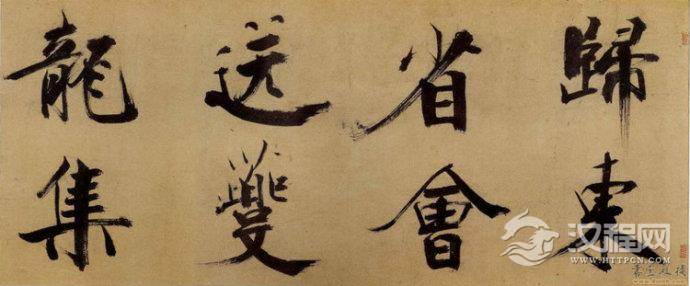 歸東
省會
送夔
龍集
汉程网
WWW.HTTPCN.COM